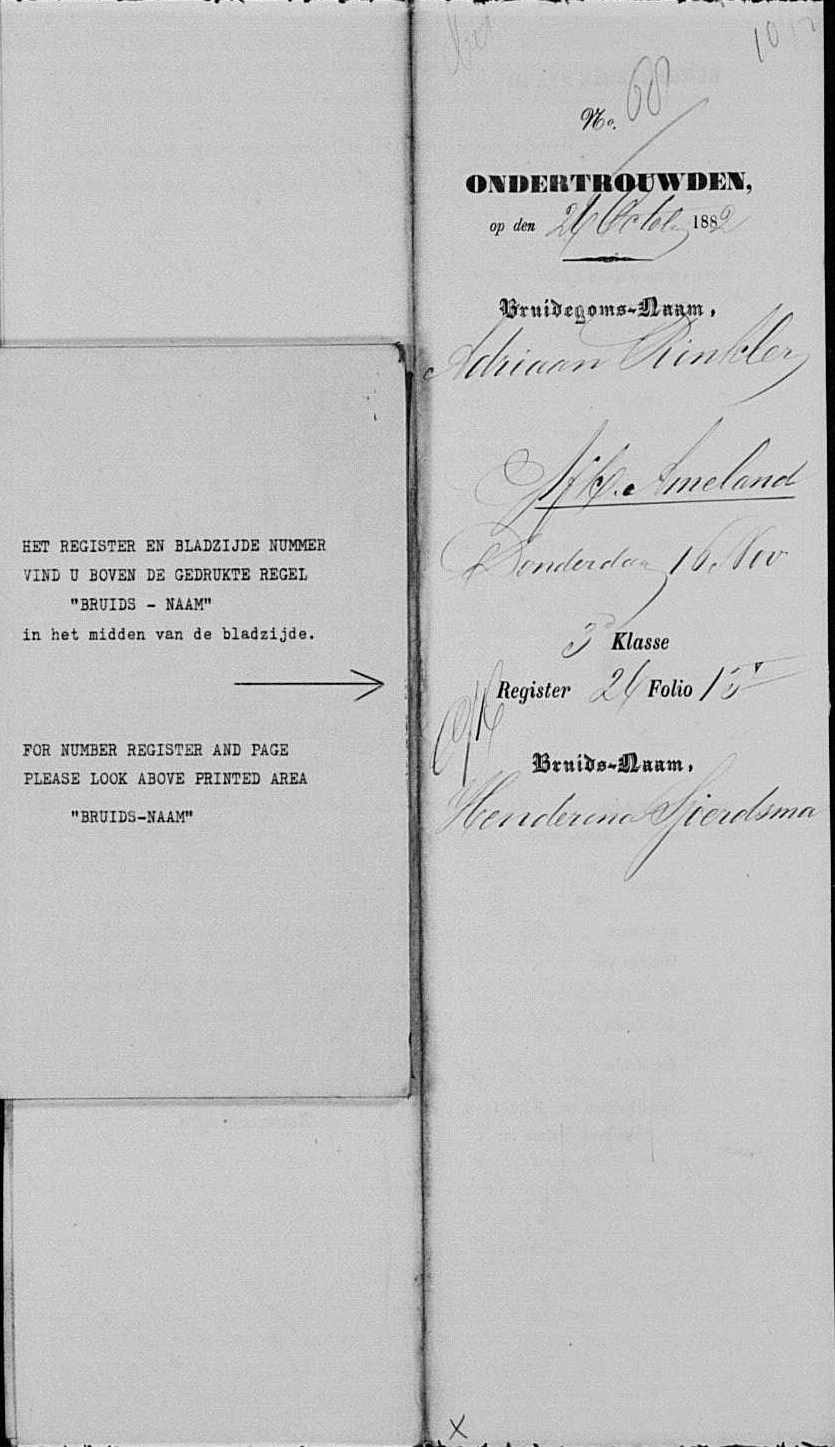 HET REGISTER EN BLADZIJDE NUMMER
VIND U BOVEN DE GEDRUKTE REGEL
"BRUIDS - NAAM"
in het midden van de bladzijde.
FOR NUMBER REGISTER AND PAGE
PLEASE LOOK ABOVE PRINTED AREA
"BRUIDS-NAAM"
No. 68
ONDERTROUWDEN,
op den 26 Octob 1882
Bruidegoms-Naam,
Adriaan Rinkler
Ameland
Donderdag 16 Nov
3e Klasse
Register 26 Folio 15v
Bruids-Naam,
Henderina Sjierdsma
X